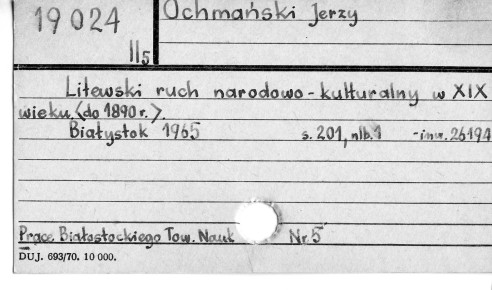 19024
II5
Ochmański Jerzy
Litewski ruch narodowo-kulturalny w XIX
wieku. <do 1890 r.>.
Białystok 1965 s. 201, nlb. 1 -inw. 26194
Prace Białostockiego Tow. Nauk Nr. 5
DUJ. 693/70. 10 000.